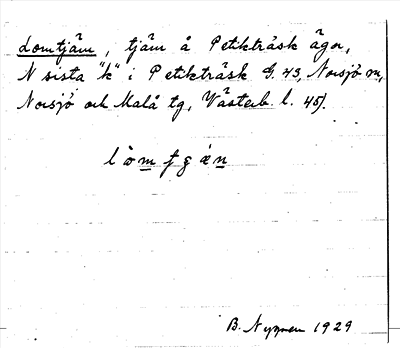 Lomtjärn, tjärn å Petikträsk ägor,
N sista "k" i Petikträsk G. 43, Norsjö m,
Norsjö och Malå tg, Västerb. l. 45).
B. Nyman 1929